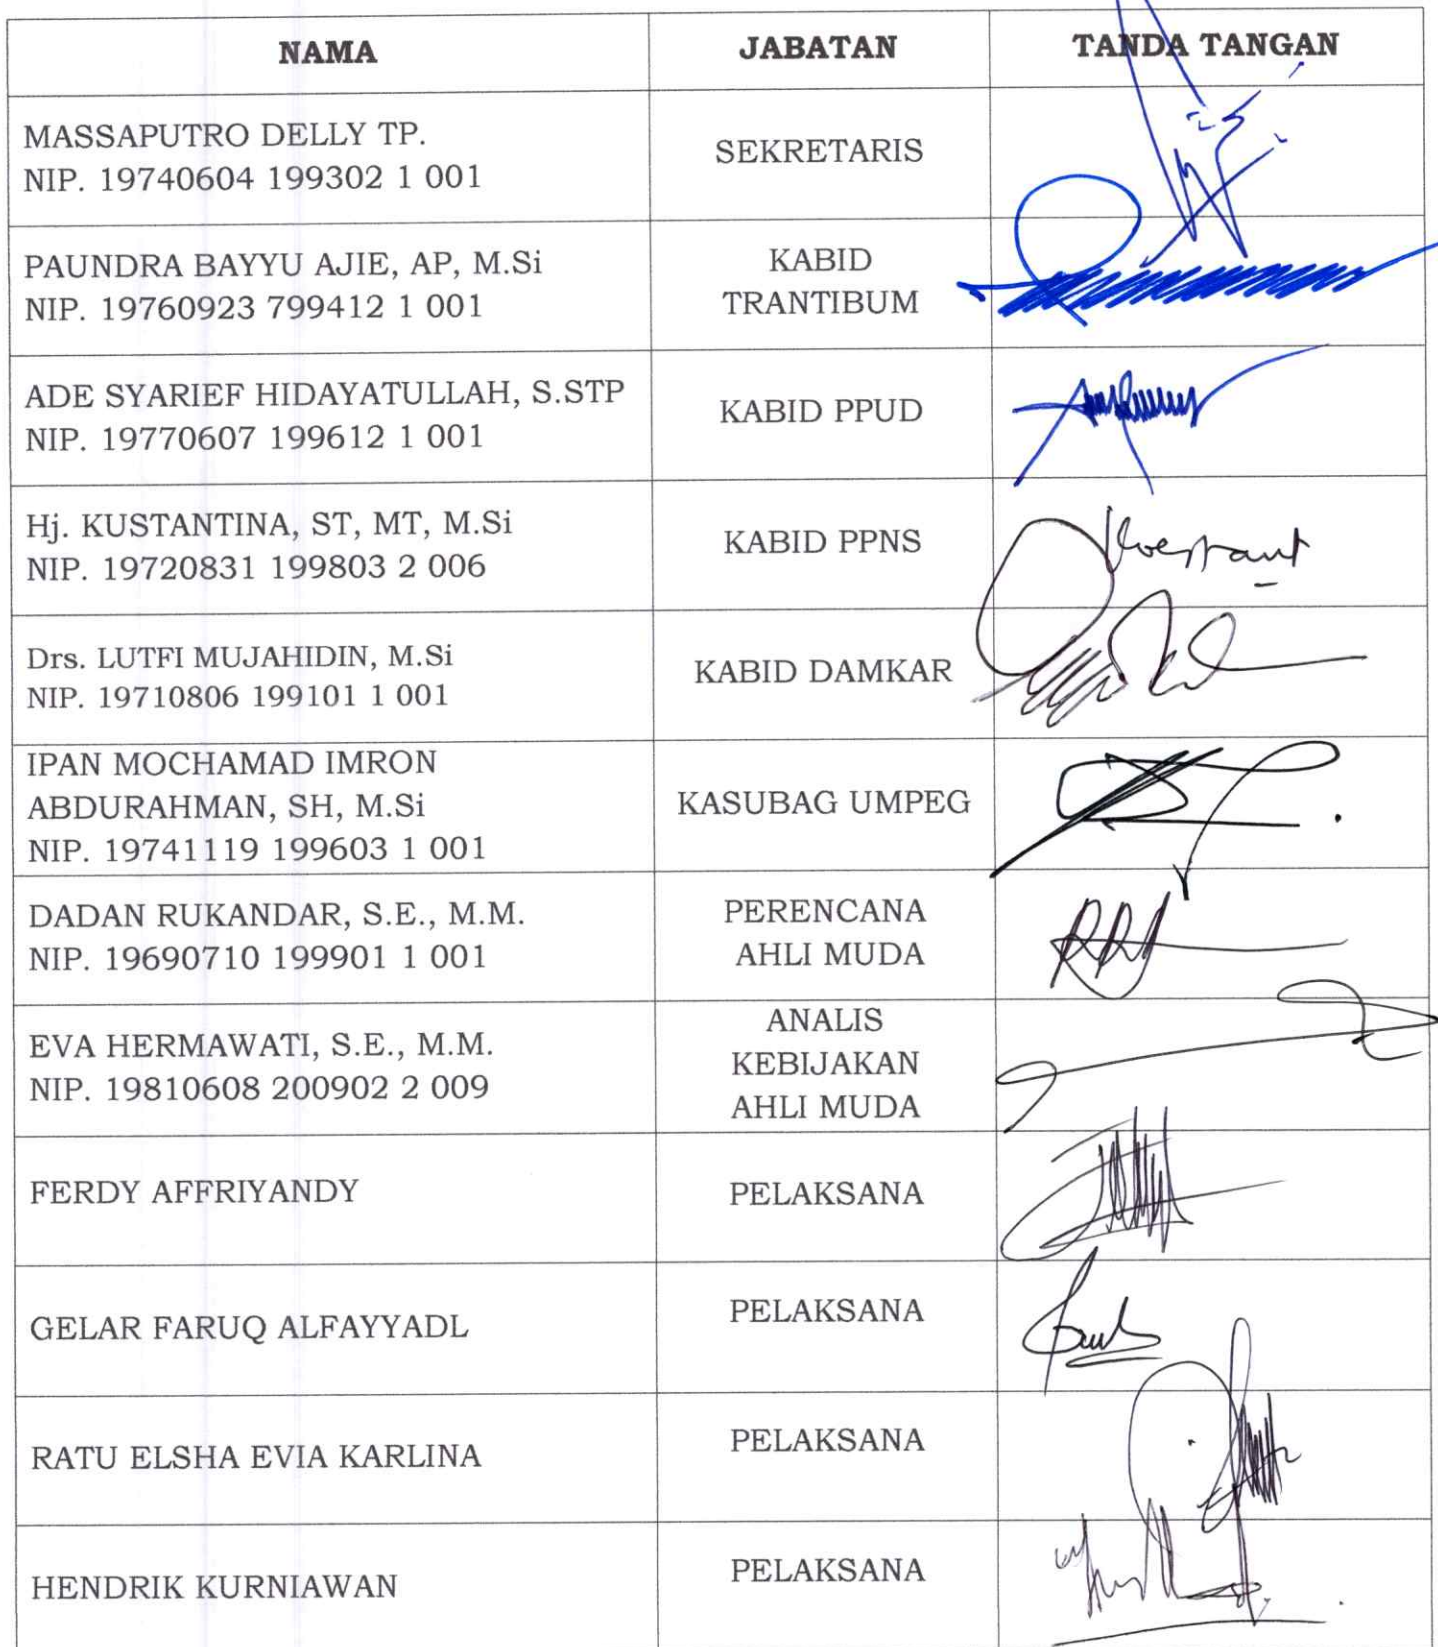 NAMA JABATAN TANDA TANGAN
MASSAPUTRO DELLY TP.
NIP. 19740604 199302 1 001
SEKRETARIS
PAUNDRA BAYYU AJIE, AP, M.Si
NIP. 19760923 799412 1 001
KABID
TRANTIBUM
ADE SYARIEF HIDAYATULLAH, S.STP
NIP. 19770607 199612 1 001
KABID PPUD
Hj. KUSTANTINA, ST, MT, M.Si
NIP. 19720831 199803 2 006
KABID PPNS
Drs. LUTFI MUJAHIDIN, M.Si
NIP. 19710806 199101 1 001
KABID DAMKAR
IPAN MOCHAMAD IMRON
ABDURAHMAN, SH, M.Si
NIP. 19741119 199603 1 001
KASUBAG UMPEG
DADAN RUKANDAR, S.E., M.M.
NIP. 19690710 199901 1 001
PERENCANA
AHLI MUDA
EVA HERMAWATI, S.E., M.M.
NIP. 19810608 200902 2 009
ANALIS
KEBIJAKAN
AHLI MUDA
FERDY AFFRIYANDY
PELAKSANA
GELAR FARUQ ALFAYYADL
PELAKSANA
RATU ELSHA EVIA KARLINA
PELAKSANA
HENDRIK KURNIAWAN
PELAKSANA